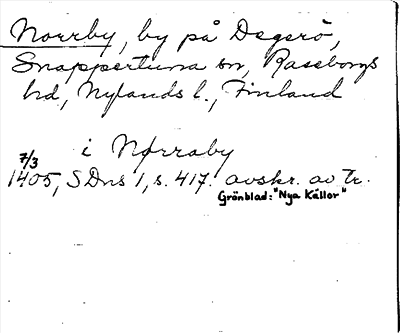 Norrby, by på Degerö,
Snappertuna sn, Raseborgs
hd, Nylands l., Finland
i Nørraby
7/3
1405, SDns 1, s. 417. avskr. av Tr.
Grönblad: "Nya Källor"